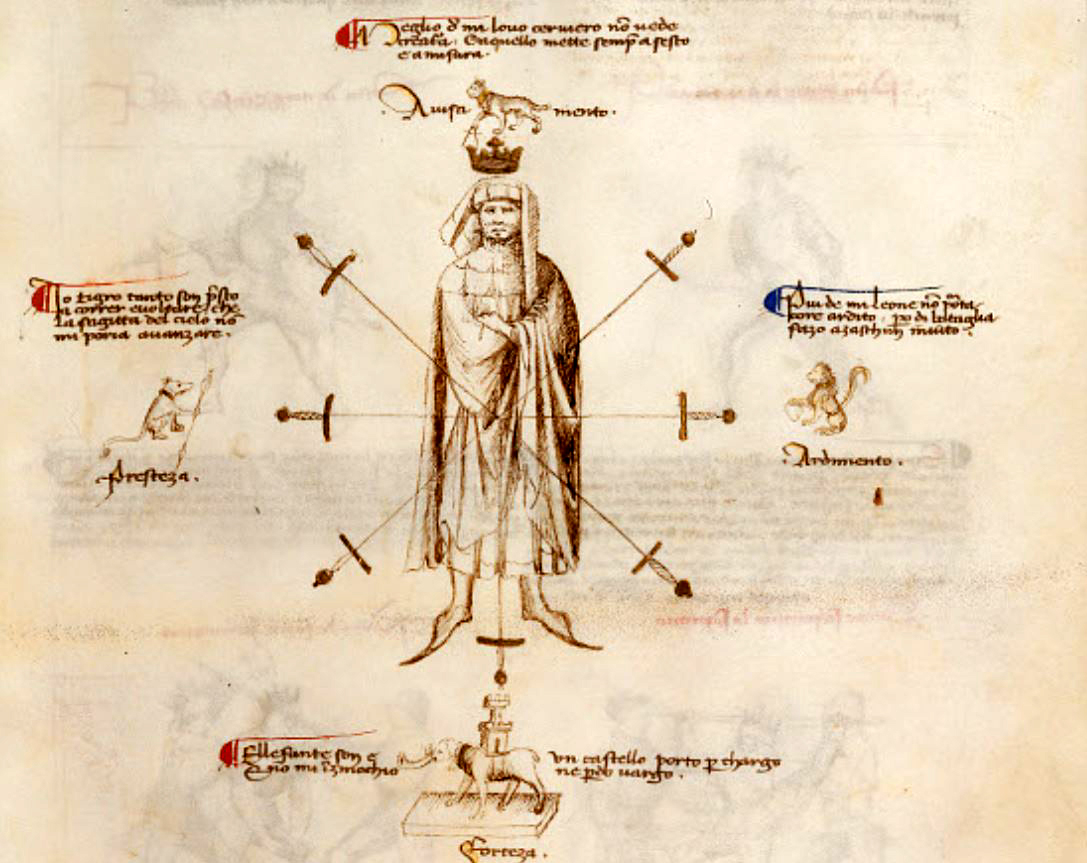 Meglio d̄ mi louo ceruiero nō uede
creat͞a. Eaquello mette semp̄ a sesto
e a misura.
Auisamento.
Io tigro tanto son p̄sto
a correr e uoltare che
la sagitta del cielo nō
mi poria auanzare.
Presteza.
Piu de mi leone nō porta
core ardito, po di bataglia
fazo azaschun inuito.
Ardimento.
Ellefante son e un castello porto p chargo
E nō mi inzinochio ne pdo uargo.
Forteza.